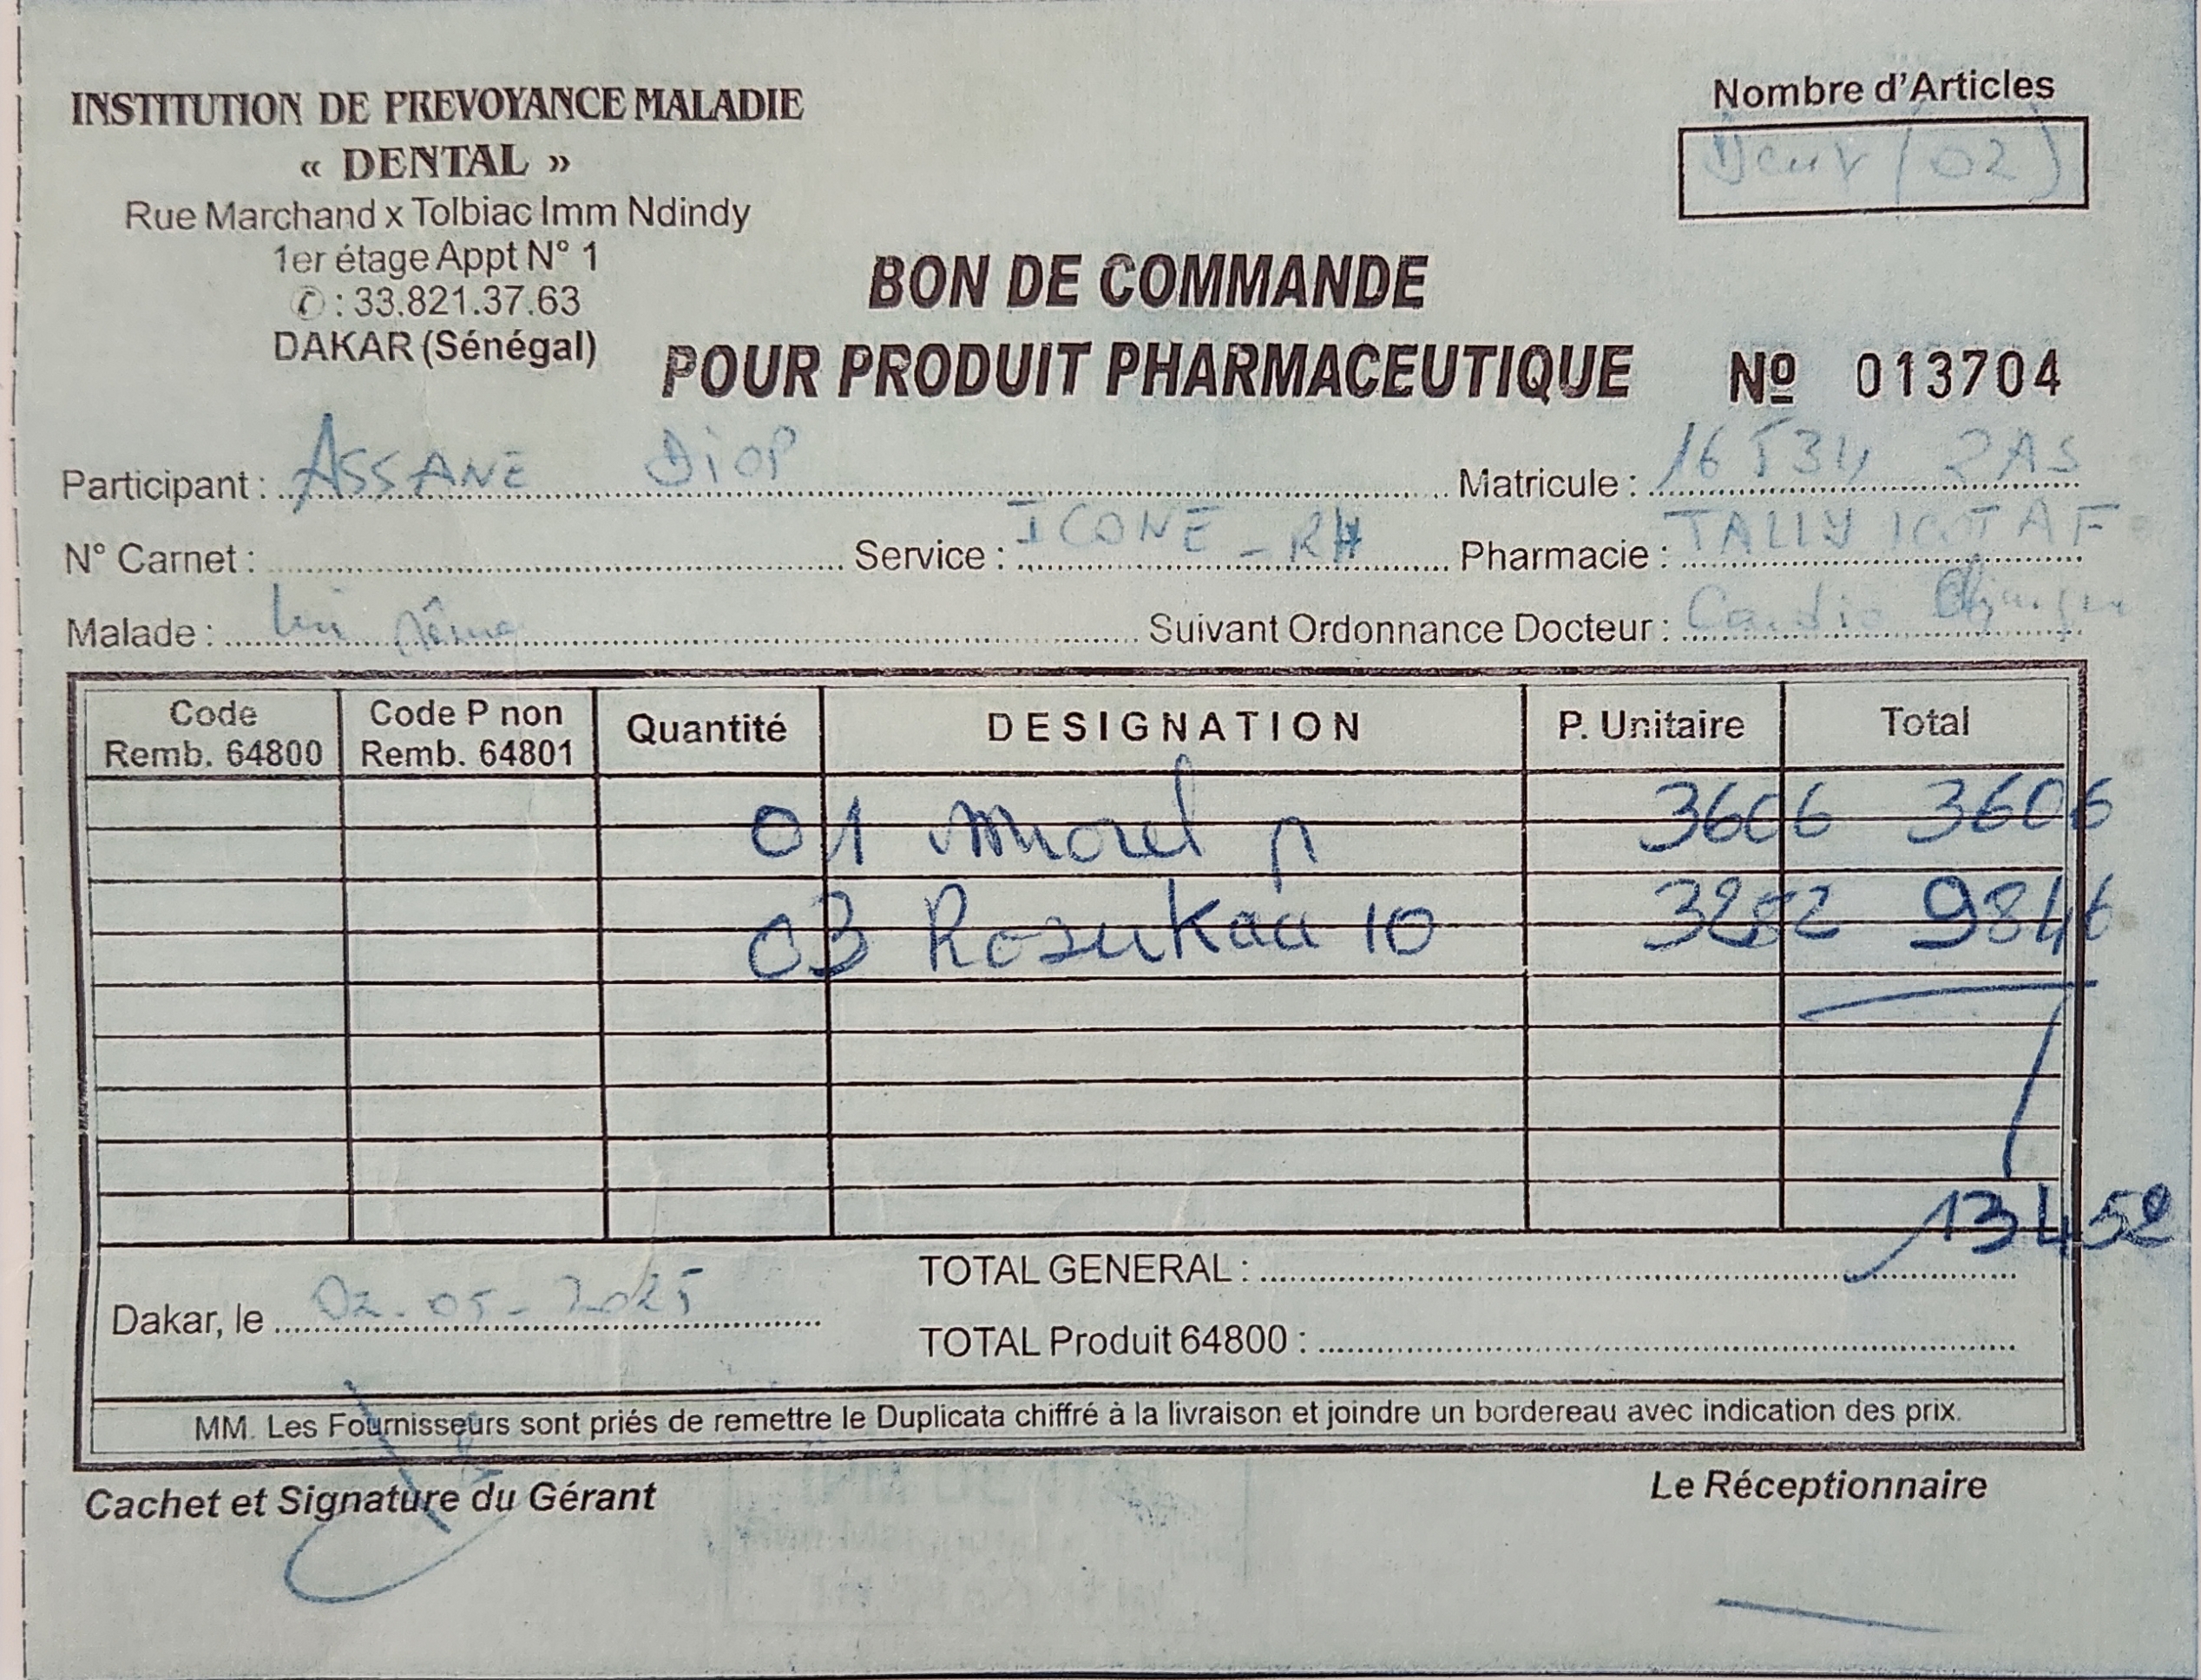 INSTITUTION DE PREVOYANCE MALADIE
« DENTAL »
Rue Marchand x Tolbiac Imm Ndindy
1er étage Appt N° 1
✆ : 33.821.37.63
DAKAR (Sénégal)
Nombre d'Articles
Deux (02)
BON DE COMMANDE
POUR PRODUIT PHARMACEUTIQUE Nº 013704
Participant : ASSANE DIOP Matricule : 
N° Carnet : Service : ICONE - RH Pharmacie : TALLY ICOTAF
Malade : lui même Suivant Ordonnance Docteur : Candio
Code Remb. 64800 Code P non Remb. 64801 Quantité DESIGNATION P. Unitaire Total
01 3606 3606
03 10 3282 9846
13452
TOTAL GENERAL :
Dakar, le 02-05-2025
TOTAL Produit 64800 :
MM. Les Fournisseurs sont priés de remettre le Duplicata chiffré à la livraison et joindre un bordereau avec indication des prix.
Cachet et Signature du Gérant Le Réceptionnaire